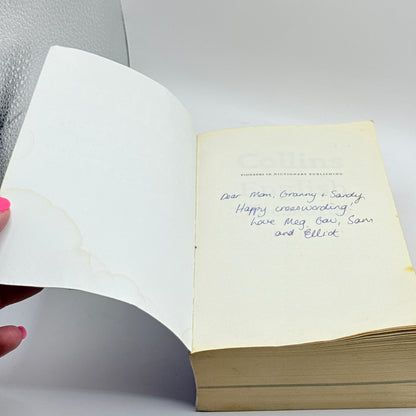 Collins
PIONEERS IN DICTIONARY PUBLISHING
Dear Mom, Granny + Sandy,
Happy crosswording!
Love Meg, Gav, Sam
and Elliot